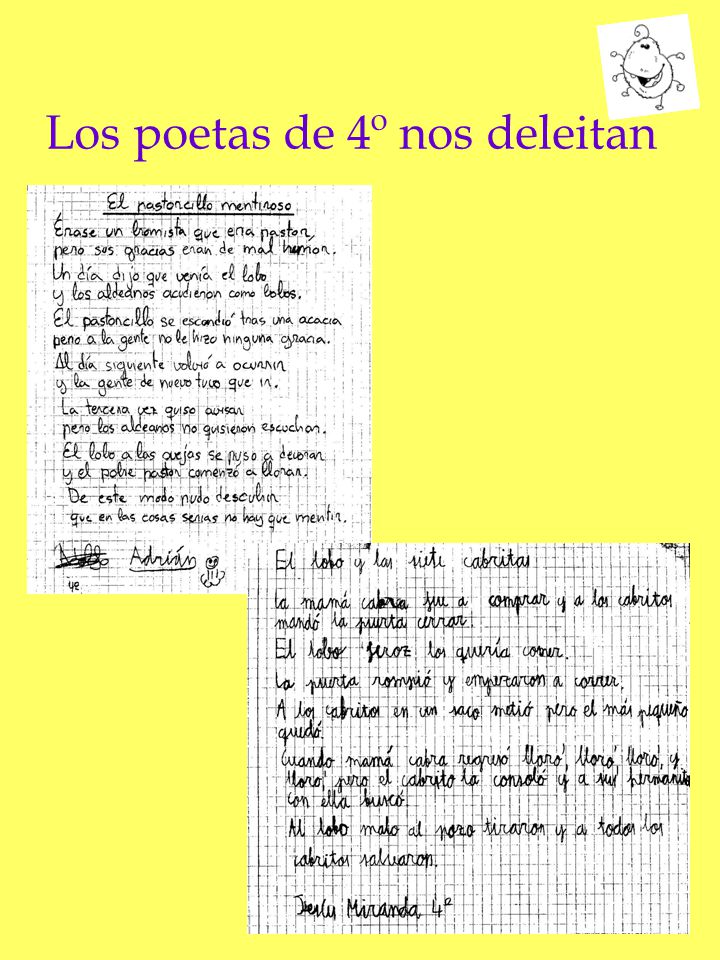 Los poetas de 4º nos deleitan
El pastorcillo mentiroso
Érase un bromista que era pastor,
pero sus gracias eran de mal humor.
Un día dijo que venía el lobo
y los aldeanos acudieron como lobos.
El pastorcillo se escondió tras una acacia
pero a la gente no le hizo ninguna gracia.
Al día siguiente volvió a ocurrir
y la gente de nuevo tuvo que ir.
La tercera vez quiso avisar
pero los aldeanos no quisieron escuchar.
El lobo a las ovejas se puso a devorar
y el pobre pastor comenzó a llorar.
De este modo pudo descubrir
que en las cosas serias no hay que mentir.
Adrián
4º
El lobo y las siete cabritas
La mamá cabra fue a comprar y a los cabritos
mandó la puerta cerrar.
El lobo feroz los quería comer.
La puerta rompió y empezaron a correr.
A los cabritos en un saco metió pero el más pequeño
quedó.
Cuando mamá cabra regresó lloró, lloró, lloró, y
lloró, pero el cabrito la consoló y a sus hermanito
con ella buscó.
Al lobo malo al pozo tiraron y a todos los
cabritos salvaron.
Jesús Miranda 4º